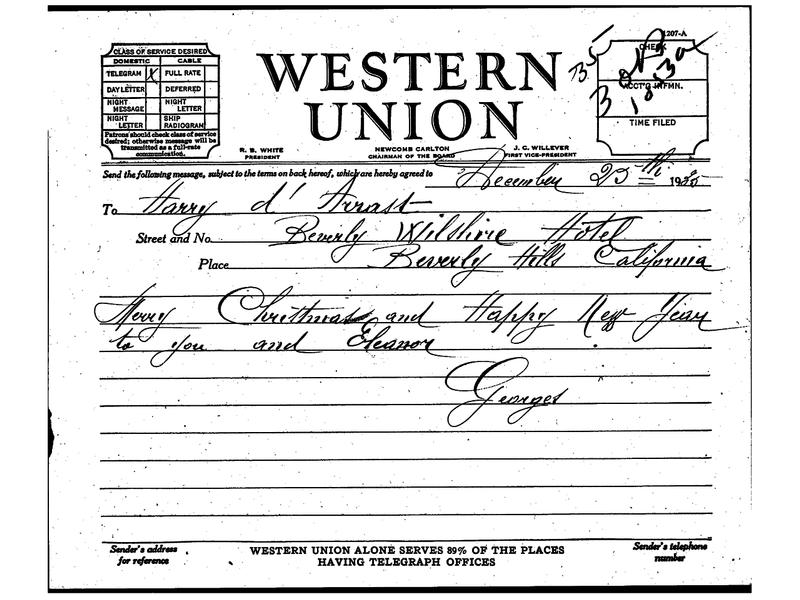 1207-A
CLASS OF SERVICE DESIRED
DOMESTIC CABLE
TELEGRAM X FULL RATE
DAY LETTER DEFERRED
NIGHT MESSAGE NIGHT LETTER
NIGHT LETTER SHIP RADIOGRAM
Patrons should check class of service
desired; otherwise message will be
transmitted as a full-rate
communication.
WESTERN
UNION
R. B. WHITE
PRESIDENT
NEWCOMB CARLTON
CHAIRMAN OF THE BOARD
J. C. WILLEVER
FIRST VICE-PRESIDENT
CHECK
ACCT'G INFMN.
TIME FILED
Send the following message, subject to the terms on back hereof, which are hereby agreed to
December 25th 193
To Harry d'Arrast
Street and No. Beverly Wilshire Hotel
Place Beverly Hills California
Merry Christmas and Happy New Year
to you and Eleanor
Georges
Sender's address
for reference
WESTERN UNION ALONE SERVES 89% OF THE PLACES
HAVING TELEGRAPH OFFICES
Sender's telephone
number